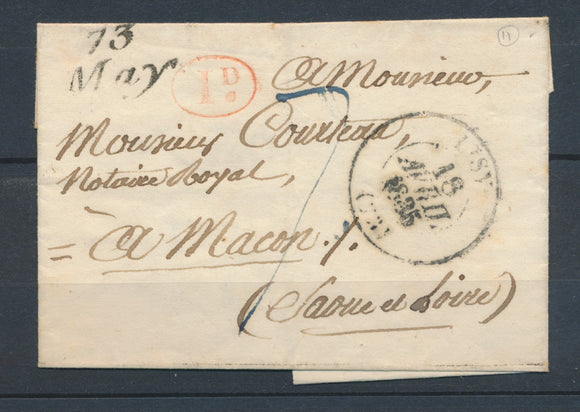 73
May
1D.
A Monsieur,
Monsieur Courteau,
Notaire Royal,
= A Macon ./.
(Saone et Loire)
LISY
18
AVRIL
1835
(73)
11